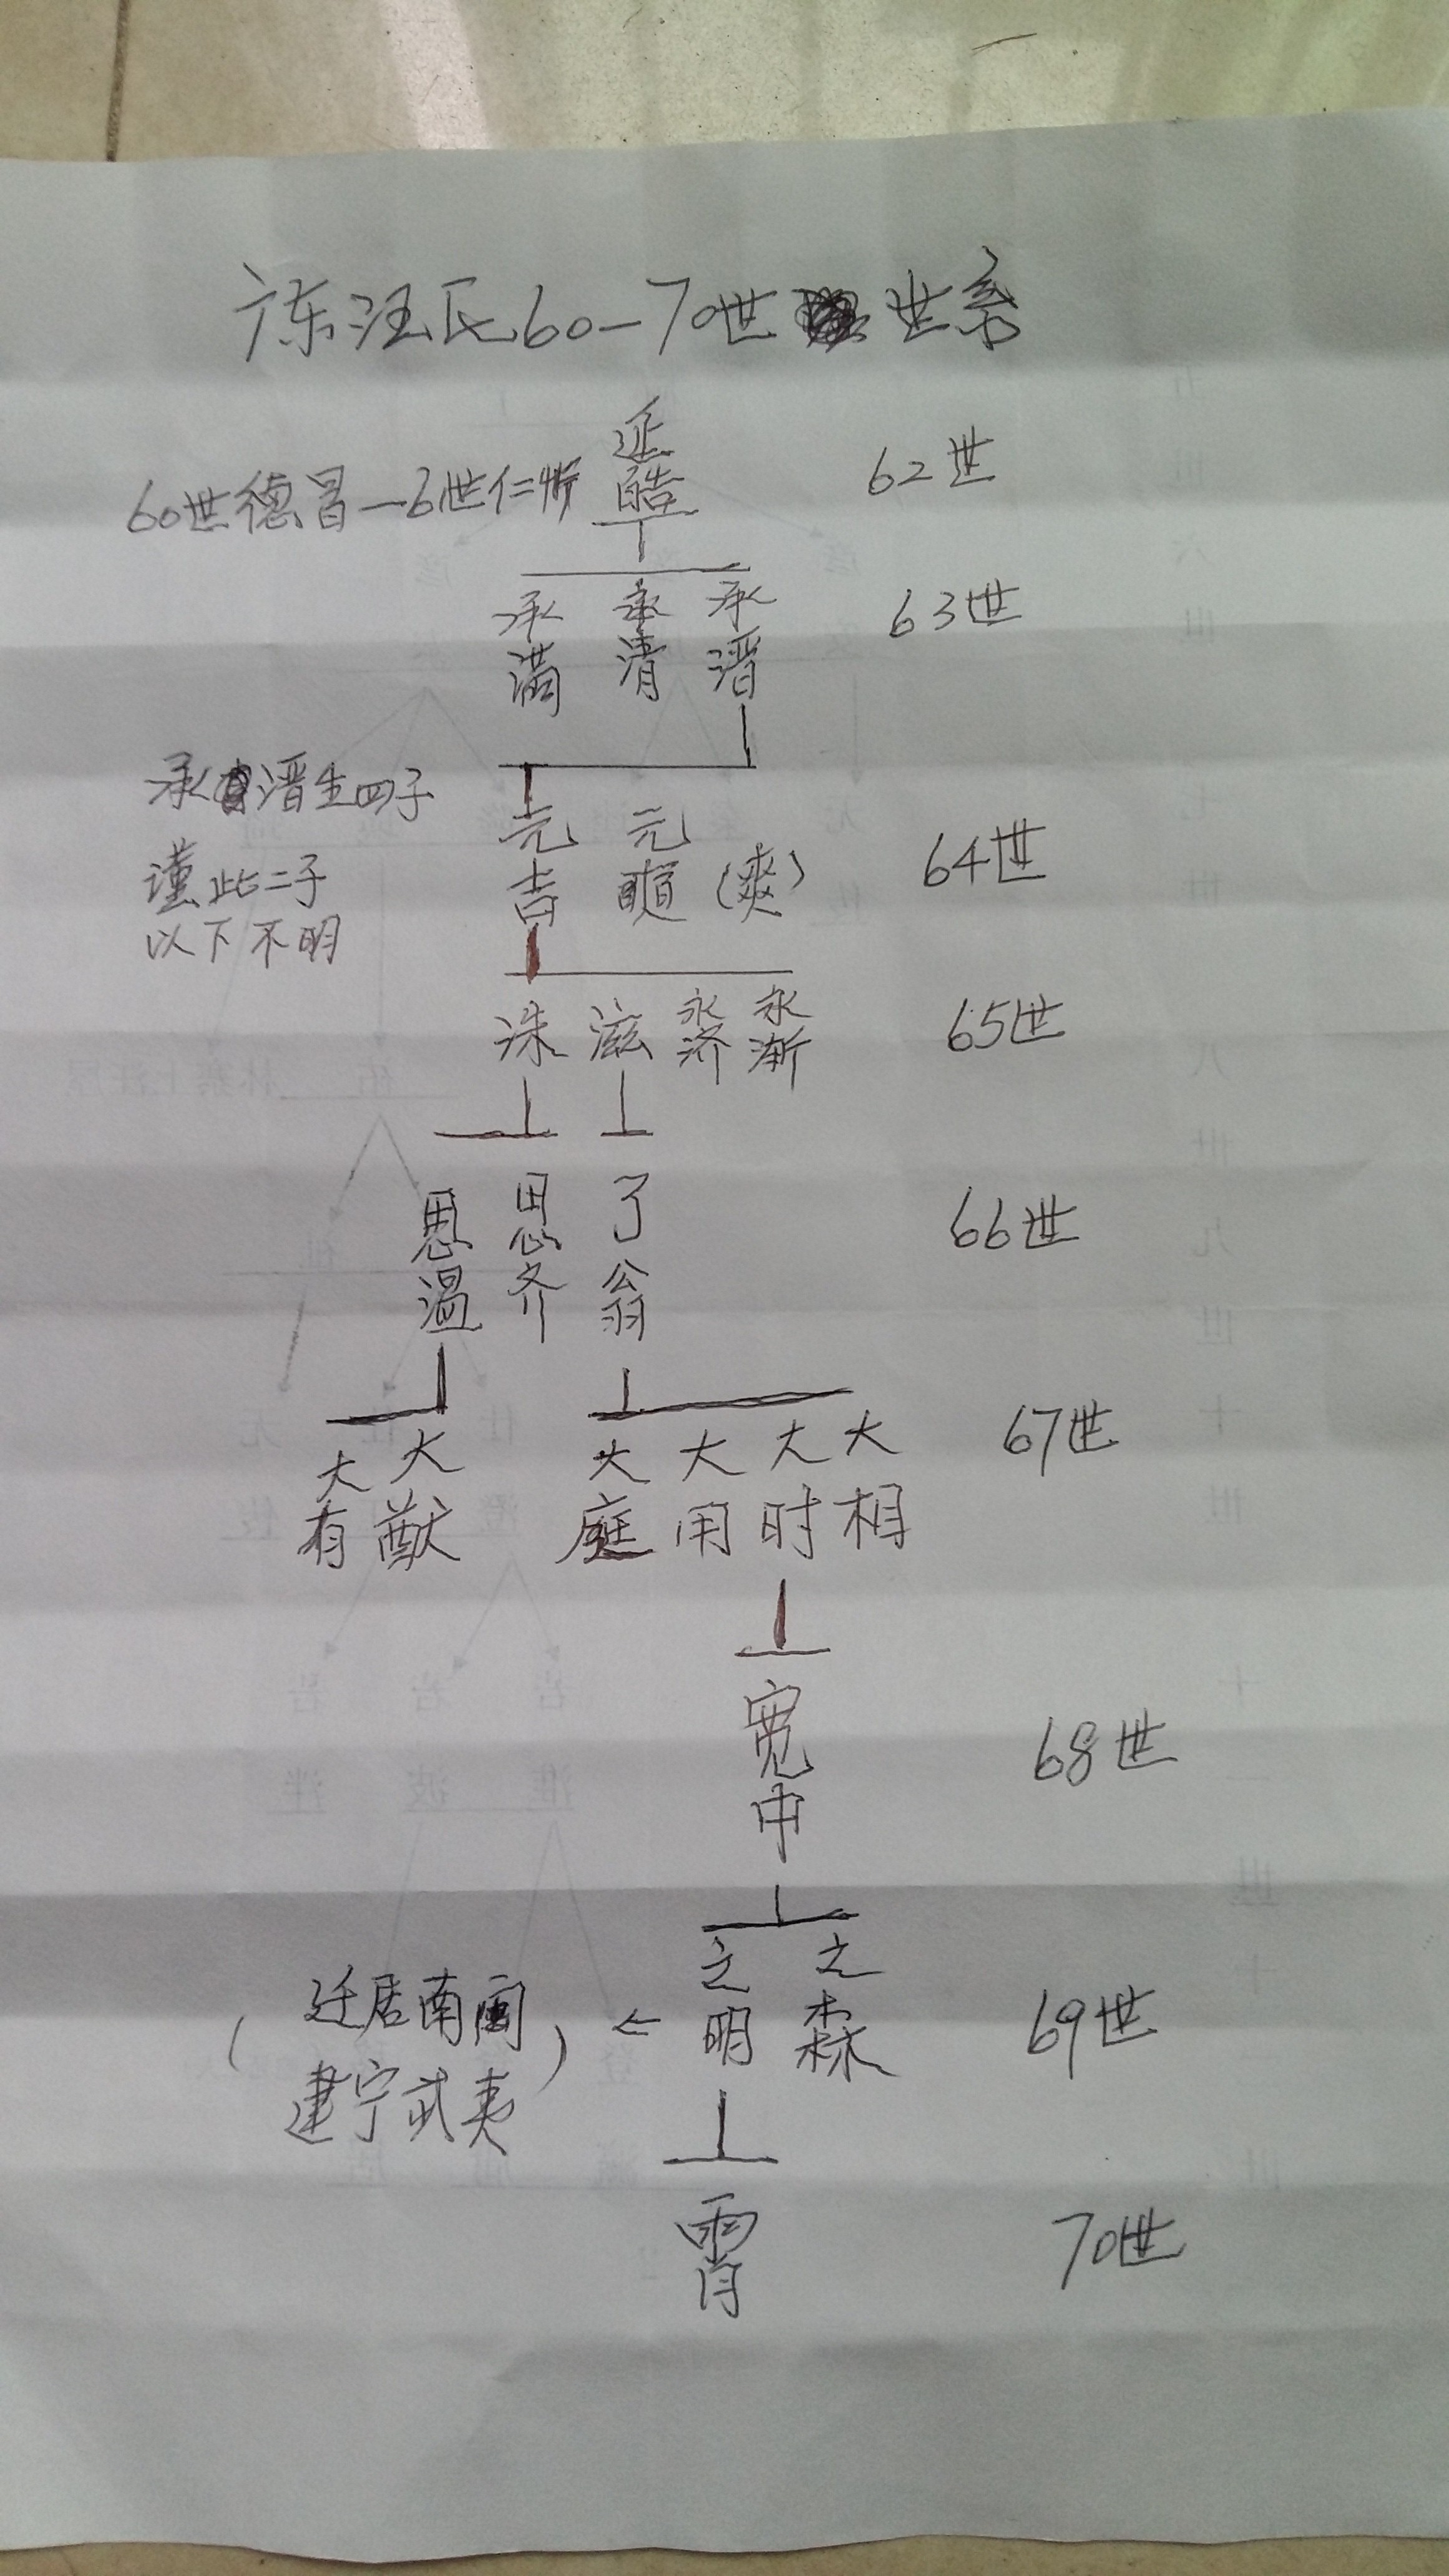 广东汪氏60—70世世系
60世德冒—61世仁忻 延皓 62世
承满 承清 承溍 63世
承溍生四子
谨此二子
以下不明
元吉 元 (爽) 64世
洙 滋 永济 永渐 65世
思温 思齐 了翁 66世
大有 大猷 大庭 大用 大时 大相 67世
宽中 68世
之明 之森 69世
← (迁居南闽
建宁武夷)
霄 70世